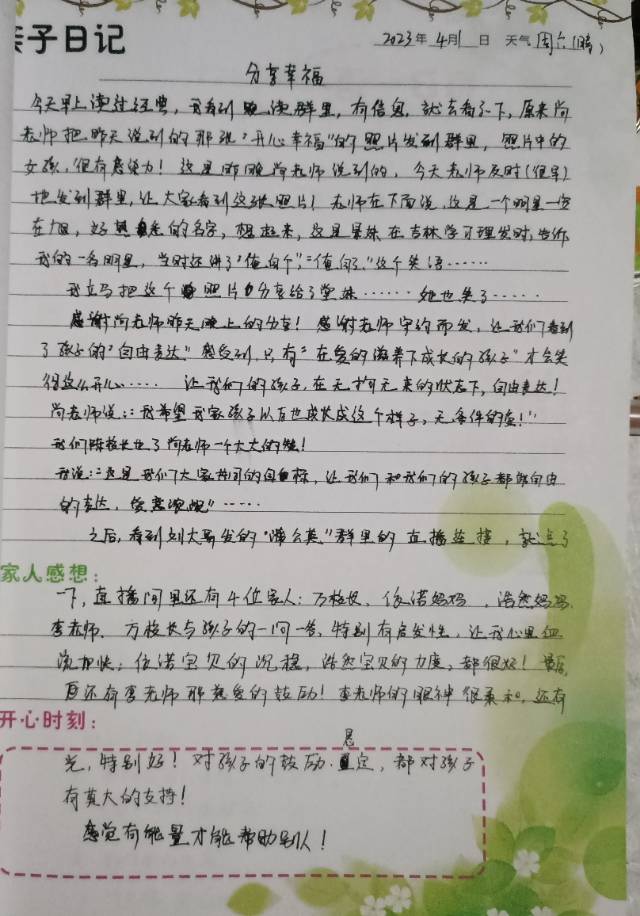 亲子日记
2023年 4月1日 天气 周六(晴)
分享幸福
今天早上读过经典，我看到晚读群里，有信息，就去看了下，原来尚
老师把昨天说到的那张"开心幸福"的照片发到群里，照片中的
女孩，很有感染力！这是昨晚尚老师说到的，今天老师及时(很早)
地发到群里，让大家看到这张照片！老师在下面说，这是一个明星一
在加，好 的名字，想起来，这是 妹在吉林学习理发时，告诉
我的一名明星，当时还讲了"俺自个"="俺 "这个笑话……
我立马把这个照片分享给了堂妹……她也笑了……
感谢尚老师昨天晚上的分享！感谢老师 而发，让我们看到
了孩子的"自由表达"感受到，只有"在爱的滋养下成长的孩子"才会笑
得这么开心…… 让我们的孩子，在无拘无束的状态下，自由表达！
尚老师说："我希望我家孩子以后也成长成这个样子，无条件的爱！"
我们 校长也了尚老师一个大大的赞！
我说："这是我们大家共同的目标，让我们和我们的孩子都能自由
的表达，
之后，看到刘大哥发的" "群里的直播连接，就点了
家人感想：
一下，直播间里还有4位家人：万校长、依诺妈妈，浩然妈妈
李老师．万校长与孩子的一问一答，特别有启发性，让我心里血
流加快；依诺宝贝的沉稳，浩然宝贝的力度，都很好！最
后还有李老师那慈爱的鼓励！李老师的眼神很柔和，还有
开心时刻：
光，特别好！对孩子的鼓励．肯定，都对孩子
有莫大的支持！
感觉有能量才能帮助别人！